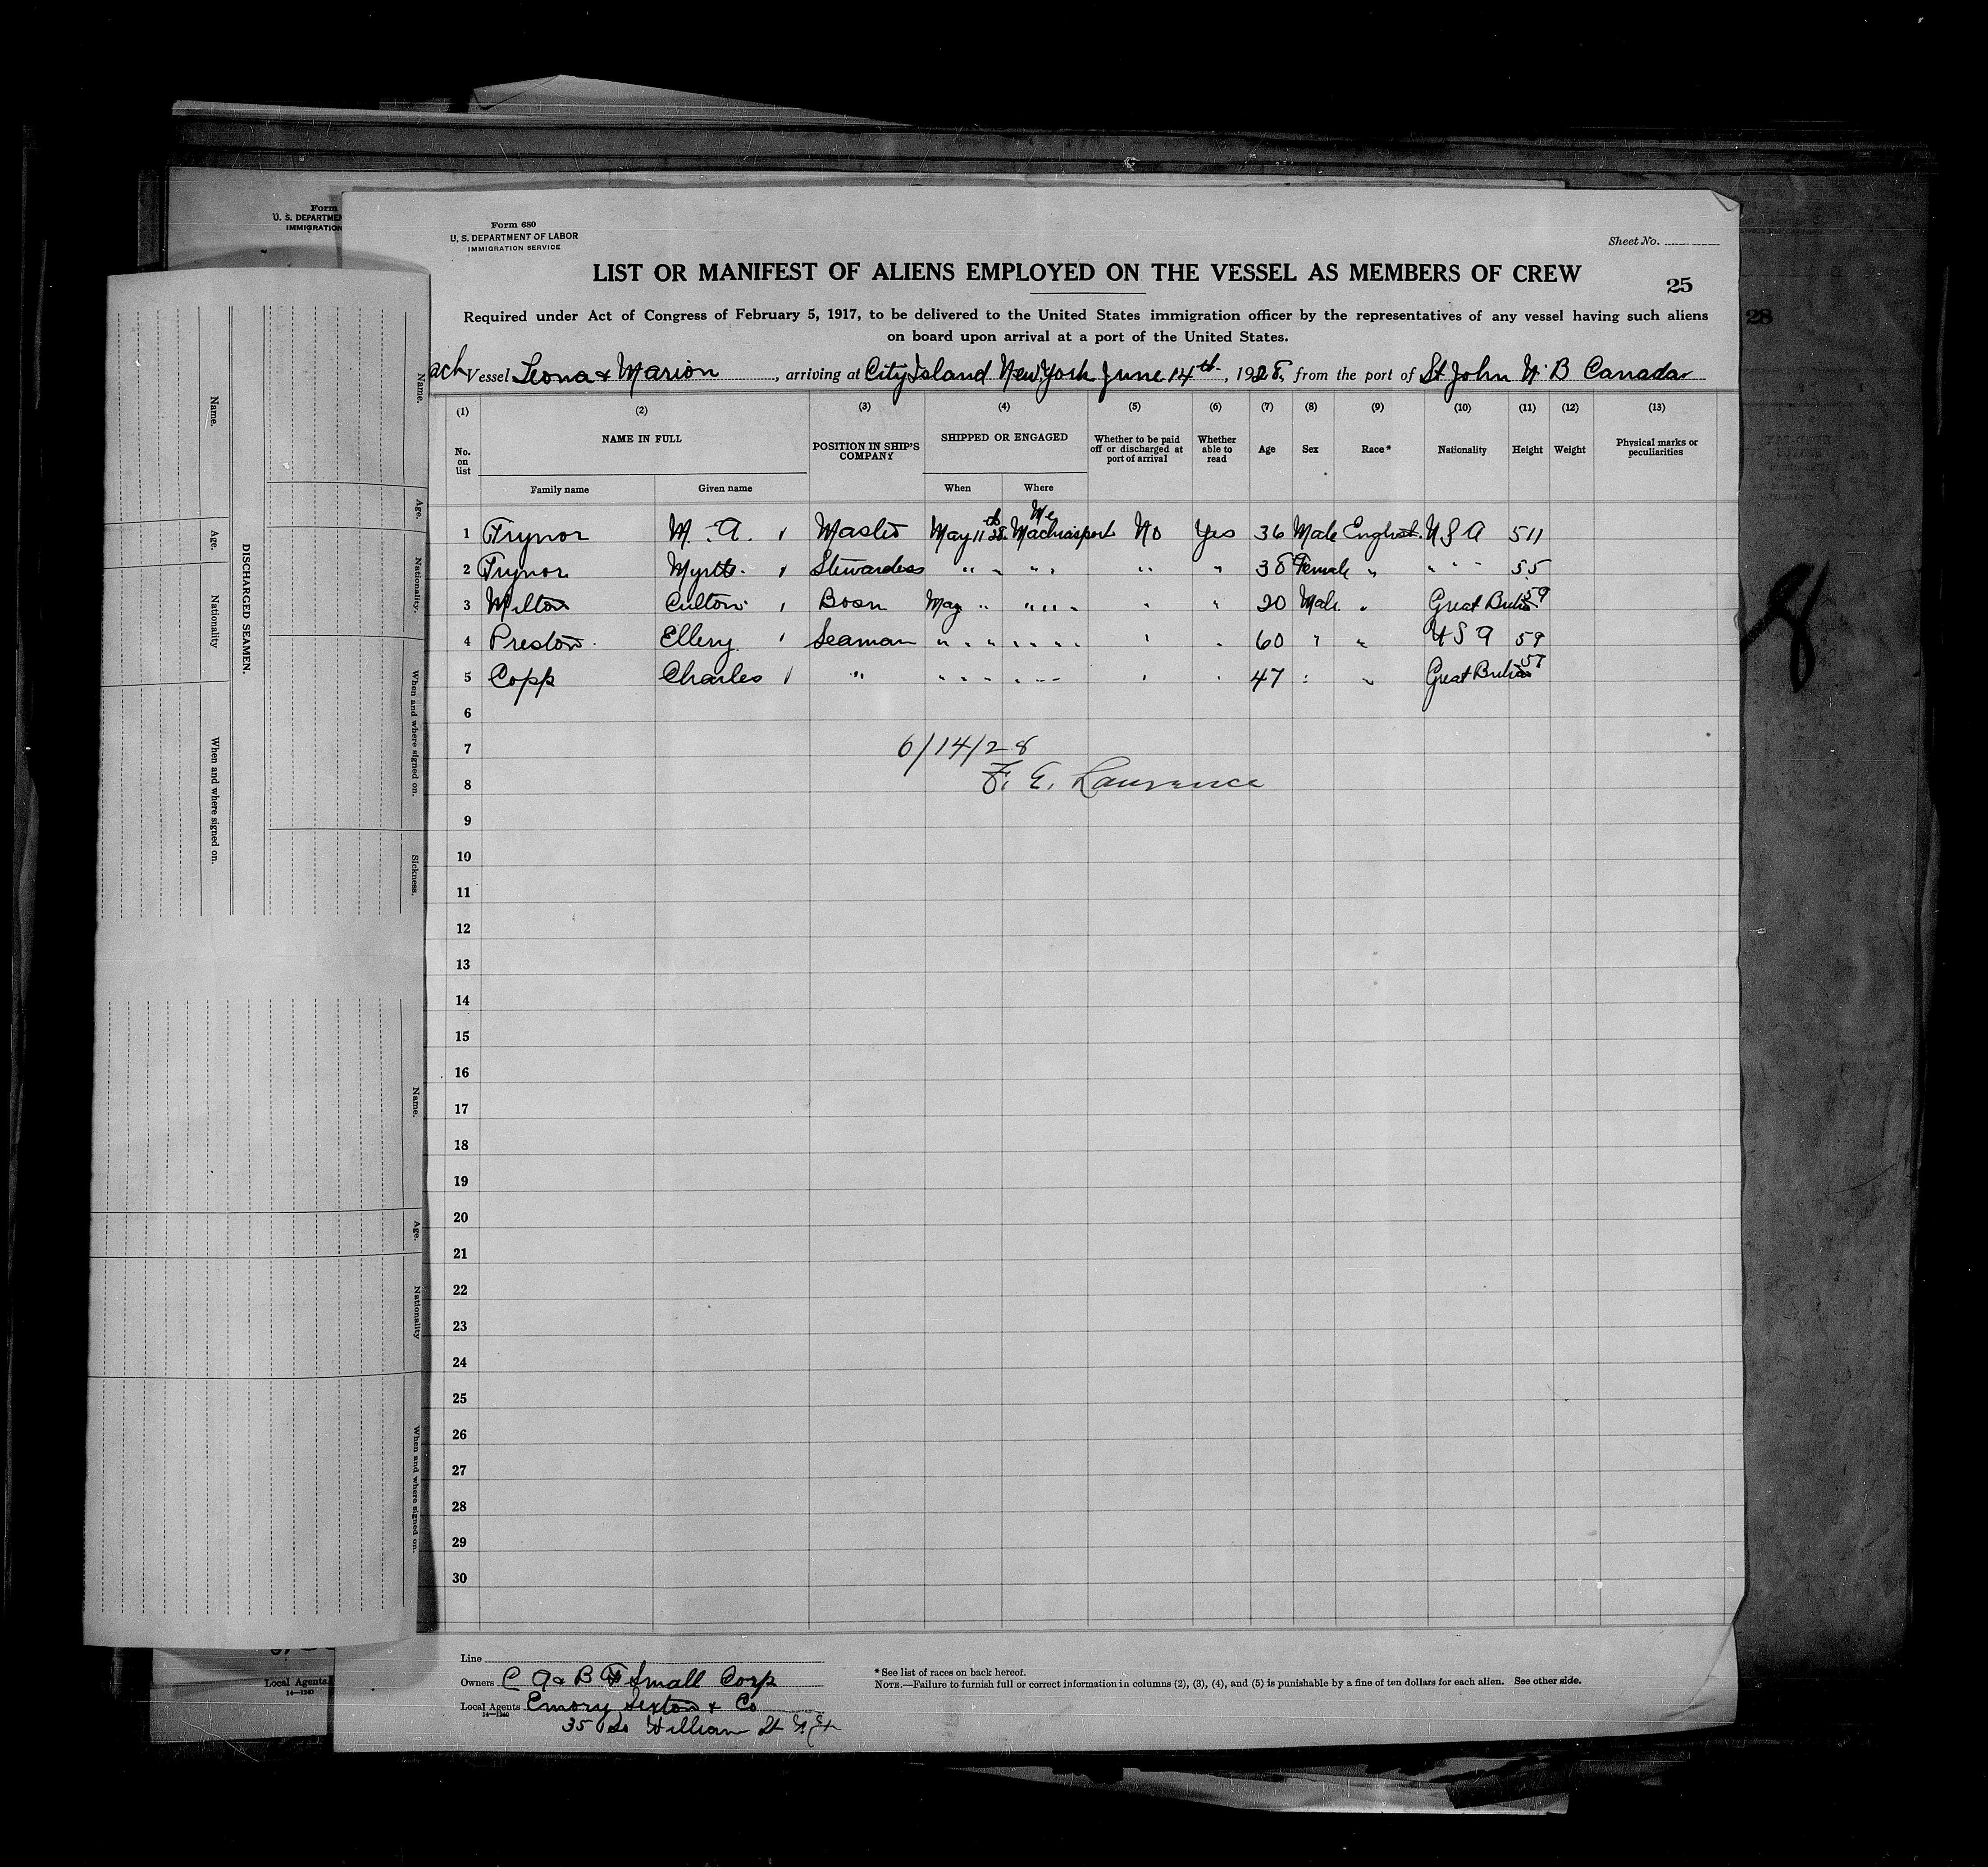 Form
U. S. DEPARTMEN
IMMIGRATION
Form 680
U. S. DEPARTMENT OF LABOR
IMMIGRATION SERVICE
Sheet No.
LIST OR MANIFEST OF ALIENS EMPLOYED ON THE VESSEL AS MEMBERS OF CREW
25
28
Required under Act of Congress of February 5, 1917, to be delivered to the United States immigration officer by the representatives of any vessel having such aliens
on board upon arrival at a port of the United States.
ach Vessel Leona & Marion, arriving at City Island New York June 14th, 1928, from the port of St John N. B Canada
(1) (2) (3) (4) (5) (6) (7) (8) (9) (10) (11) (12) (13)
No. on list NAME IN FULL POSITION IN SHIP'S COMPANY SHIPPED OR ENGAGED Whether to be paid off or discharged at port of arrival Whether able to read Age Sex Race* Nationality Height Weight Physical marks or peculiarities
Family name Given name When Where
1 Trynor M. A. Master May 11th 28 Machiasport Me No Yes 36 Male English U S A 5 11
2 Trynor Stewardess " " " " " " 38 Female " " " " 5.5
3 Milton Bosn May " " " " " " " 20 Male " Great Britain 59
4 Preston Ellery Seaman " " " " " " " " " 60 " " U S A 59
5 Copp Charles " " " " " " " " " 47 " " Great Britain 57
6
7 6/14/28
8 F. E. Lawrence
9
10
11
12
13
14
15
16
17
18
19
20
21
22
23
24
25
26
27
28
29
30
Line
Owners C A & B Small Corp
Local Agents Emory Sexton & Co
14—1240
35 So William St N.Y.
* See list of races on back hereof.
NOTE.—Failure to furnish full or correct information in columns (2), (3), (4), and (5) is punishable by a fine of ten dollars for each alien. See other side.
Local Agents
14—1240
DISCHARGED SEAMEN.
Name.
Age.
Nationality
When and where signed on.
Name.
Age.
Nationality.
When and where signed on.
Sickness.
Name.
Age.
Nationality
When and where signed on.
8